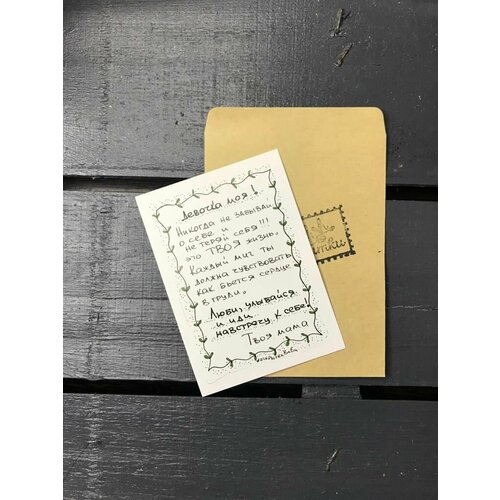 Девочка моя!
Никогда не забывай
о себе и
не теряй себя!!!
это ТВОЯ жизнь.
Каждый миг ты
должна чувствовать
как бьется сердце
в груди.
Люби, улыбайся
и иди
навстречу к себе!
Твоя мама